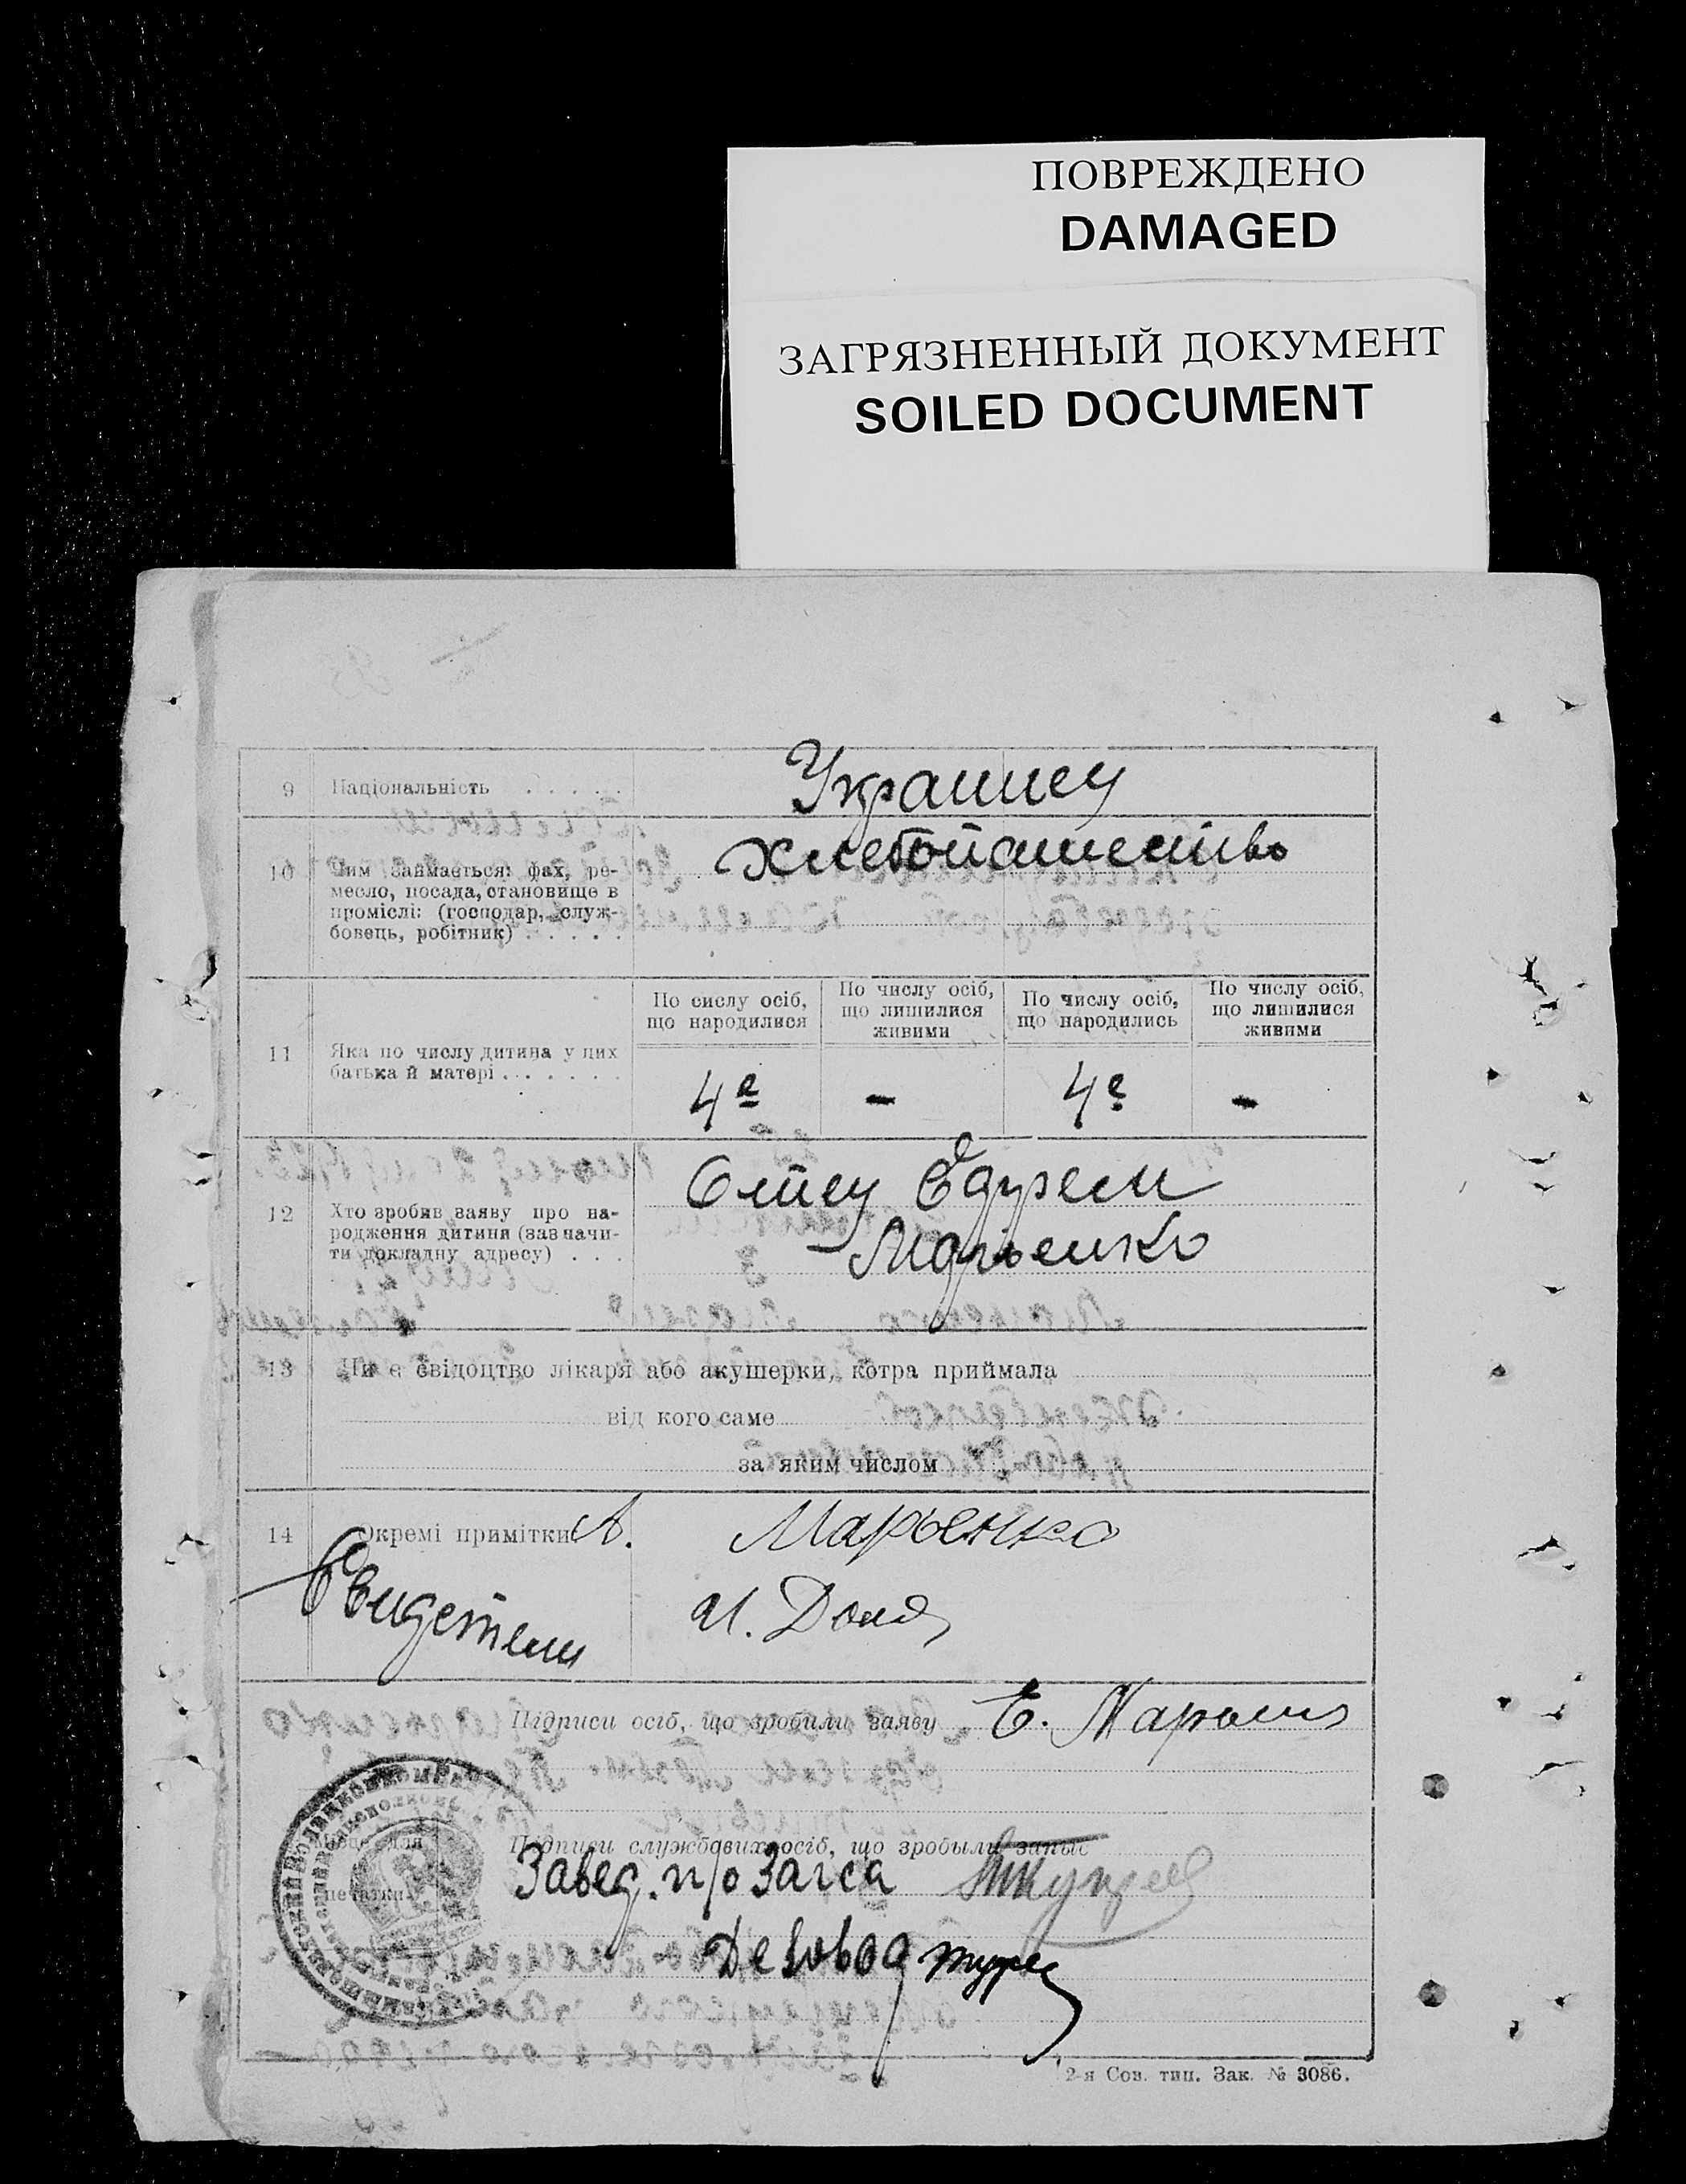 ПОВРЕЖДЕНО
DAMAGED
ЗАГРЯЗНЕННЫЙ ДОКУМЕНТ
SOILED DOCUMENT
9 Національність . . . . . Украинец
10 Чим займається: фах, ре-
месло, посада, становище в
проміслі: (господар, служ-
бовець, робітник) . . . . .
Хлебопашество
По сислу осіб,
що народилися
По числу осіб,
що лишилися
живими
По числу осіб,
що народились
По числу осіб,
що лишилися
живими
11 Яка по числу дитина у цих
батька й матері . . . . . .
4е - 4е -
12 Хто зробив заяву про на-
родження дитини (зазначи-
ти докладну адресу) . . .
Отец Ефрем
Марьенко
13 Чи є свідоцтво лікаря або акушерки, котра приймала
від кого саме
за яким числом
14 Окремі примітки А. Марьенко
Свидетели И. Доля
Підписи осіб, що зробили заяву Е.
Місце для
печатки
Подписи службових осіб, що зробыли запис
Завед. п/о Загса
Деловод
2-я Сов. тип. Зак. № 3086.